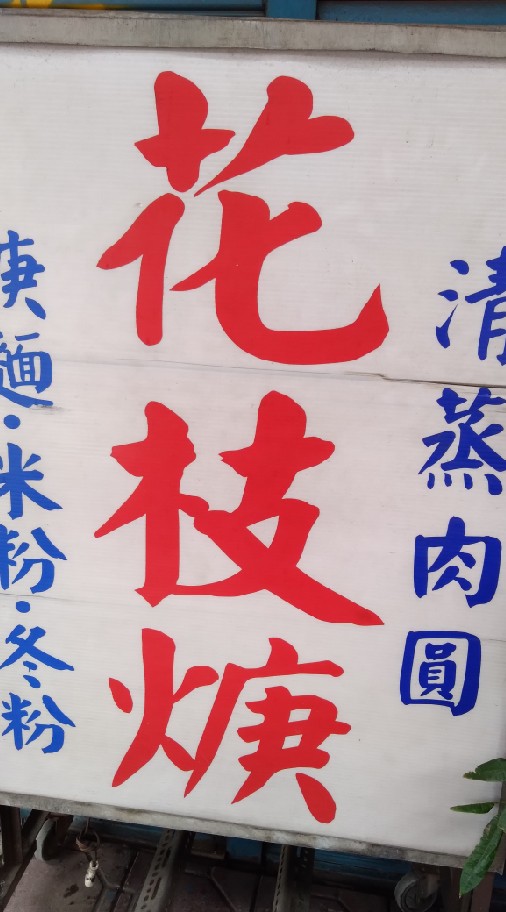 清蒸肉圓
花枝焿
焿麵·米粉·冬粉